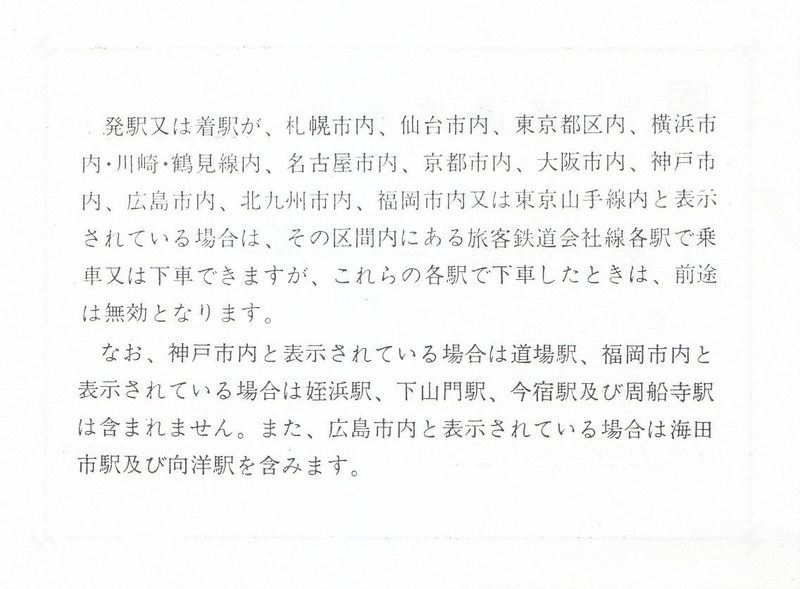 発駅又は着駅が、札幌市内、仙台市内、東京都区内、横浜市
内・川崎・鶴見線内、名古屋市内、京都市内、大阪市内、神戸市
内、広島市内、北九州市内、福岡市内又は東京山手線内と表示
されている場合は、その区間内にある旅客鉄道会社線各駅で乗
車又は下車できますが、これらの各駅で下車したときは、前途
は無効となります。
なお、神戸市内と表示されている場合は道場駅、福岡市内と
表示されている場合は姪浜駅、下山門駅、今宿駅及び周船寺駅
は含まれません。また、広島市内と表示されている場合は海田
市駅及び向洋駅を含みます。